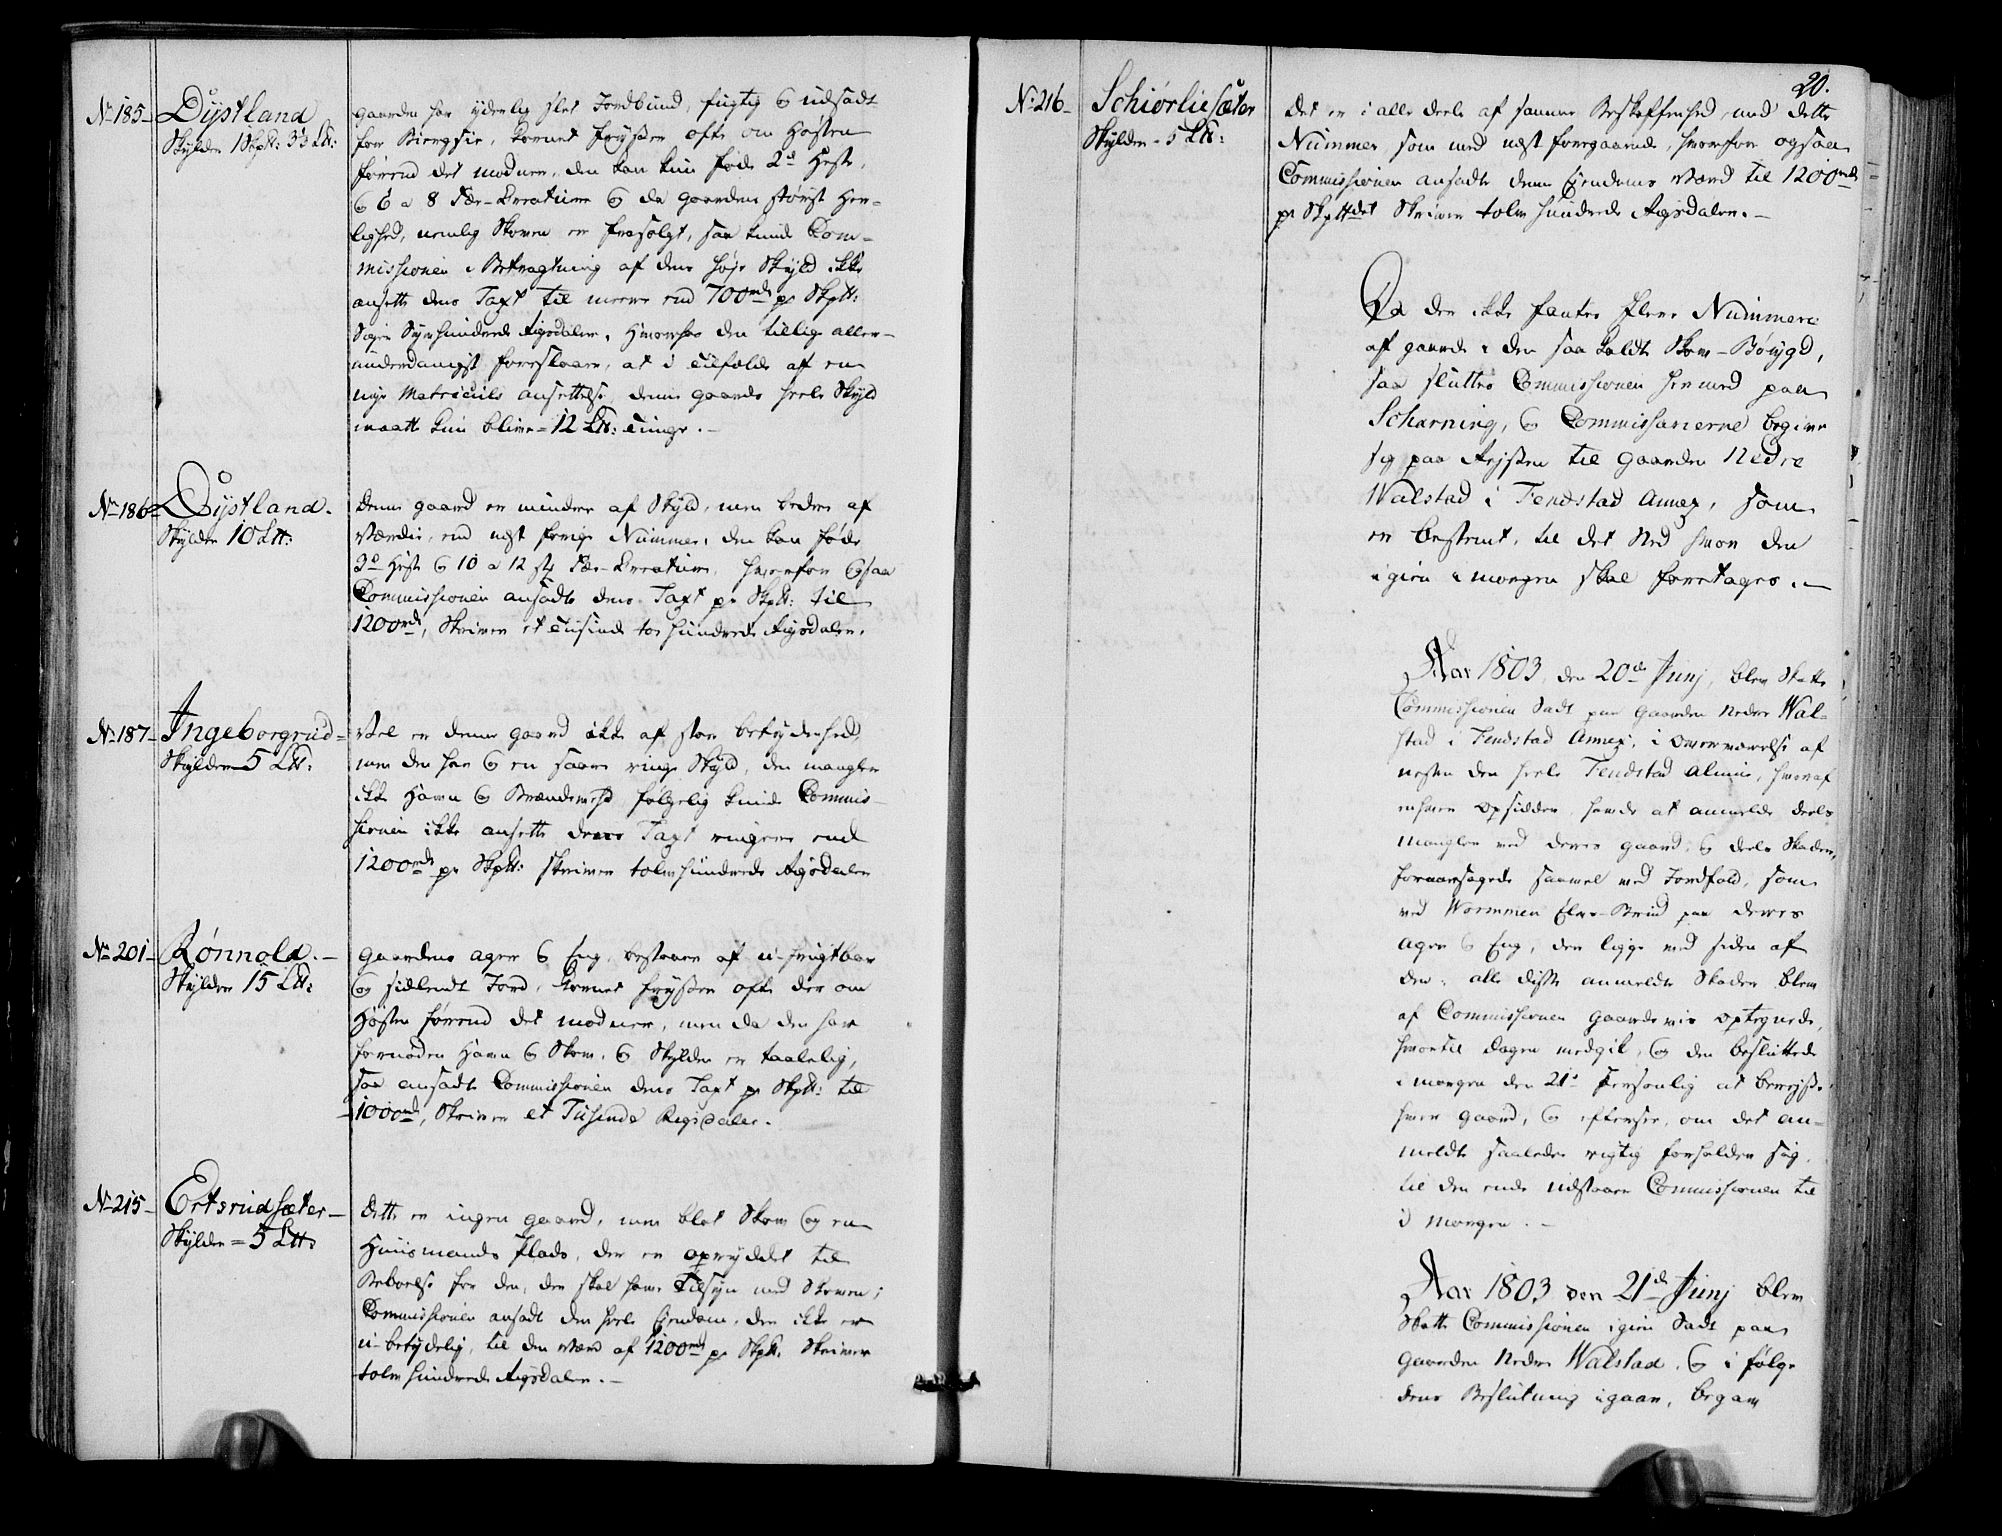 No 185 - Dÿstland
Skylder 1 Skpt: 3⅓ Lt:
gaarden har yderlig slet Jordbund, fugtig og udsadt
for Biergsiv, Kornet fryser ofte om Høsten
førend det modner, den kan kun føde 2de Heste,
og 6 a 8 Fæe-Creature og da gaardens størst Her-
lighed, nemlig Skoven er frasolgt, saa kunde Com-
missionen i Betragtning af dens høje Skyld ikke
ansette dens Taxt til mere end 700rd pr Skptt:
Siger Syvhundrede Rigsdaler, hvorhos den tillige aller-
underdanigst foreslaaer, at i Tilfælde af en
nye Matriculs ansettelse, denne gaards heele Skyld
maatte kun blive - 12 Ltt: Tunge. -
No 186 - Dÿstland.
Skylder 10 Ltt:
Denne gaard er mindre af Skyld, men bedre af
Værdie, end nest forrige Nummer, den kan føde
3de Heste og 10 a 12 stk Fæe-Creature, hvorfor ogsaa
Commissionen ansadte dens Taxt pr Skptt: til
1200rd, Skriver et Tusinde toe hundrede Rigsdaler.
No 187 - Ingeborgrud -
Skylder - 5 Ltt:
Vel er denne gaard ikke af stor betydenhed,
men den har og en saare ringe Skyld, den mangler
ikke Havn og Brændeved følgelig kunde Commis-
sionen ikke ansette dens Taxt ringere end
1200rd pr Skptt: skriver tolvhundrede Rigsdaler
No 201 - Rönnold. -
Skylder 15 Ltt:
Gaardens ager og Eng, bestaaer af u-frugtbar
og sidlendt Jord, Kornet fryser ofte der om
Høsten førend det modner, men da den har
fornøden Havn og Skov, og Skylden er taalelig,
saa ansadte Commissionen dens Taxt pr Skptt: til
1000rd, Skriver et Tusinde Rigsdaler.
No 215 - Ertsrudsæter -
Skylder = 5 Ltt:
Dette er ingen gaard, men blot Skov og en
Huusmands Plads, der er opryddet til
Beboelse for den, der skal have Tilsyn med Skoven;
Commissionen ansadt den heele Eiendom, der ikke er
u-betydelig, til den Værd af 1200rd pr Skptt: Skriver
tolv hundrede Rigsdaler. -
20.
No 216 - Schiørliesæter
Skylder - 5 Ltt:
Det er i alle deele af samme Beskaffenhed, med dette
Nummer, som med nest foregaaende, hvorfor ogsaa
Commissionen ansadte denne Eiendoms Værd til 1200rd
pr Skpttdet Skriver tolv hundrede Rigsdaler. -
Da der ikke fantes flere Nummere
af gaarde i den saa kaldte Skov-Bøÿgd,
saa sluttes Commissionen hermed paa
Scharning, og Commissarierne begiver
sig paa Rejsen til Gaarden Nedre
Walstad i Fendstad Annex, som
er bestemt, til det Sted hvor den
igien i morgen skal foretages. -
Aar 1803, den 20de Junj, blev Skatte
Commissionen Sadt paa Gaarden Nedre Wal-
stad i Fendstad Annex, i overværelse af
nesten den heele Fendstad Almue, hvoraf
enhver Opsidder, havde at anmelde deels
mangler ved deres gaard, og deels Skader,
foraarsagede saavel ved Jordfald, som
ved Wormmen Elvs-Brud paa deres
Ager og Eng, der ligge ved siden af
den; alle disse anmeldte Skader blev
af Commissionen Gaardeviis optegnede,
hvortil dagen medgik, og den besluttede
i morgen den 21de Personlig at bereyse
hver gaard, og eftersee, om det an-
meldte saaledes rigtig forholder sig,
til den ende udstaaer Commissionen til
i morgen. -
Aar 1803 den 21de Junj blev
Skatte Commissionen igien Sadt paa
Gaarden Nedre Walstad, og i følge
dens Beslutning igaar, begav